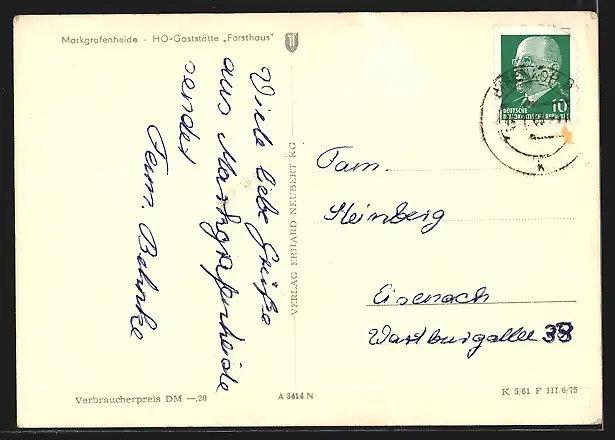 Markgrafenheide - HO-Gaststätte „Forsthaus"
Viele liebe Grüße
aus Markgrafenheide
sendet
Fam. Behnke
VERLAG ERHARD NEUBERT KG
10
DEUTSCHE
DEMOKRATISCHE REPUBLIK
K
Fam.
Steinberg
Eisenach
Wartburgallee 38
Verbraucherpreis DM —,20
A 3414 N
K 5/61 F III/6/75